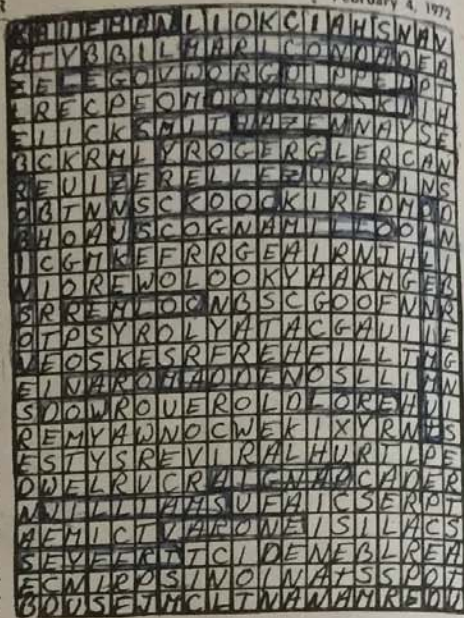 R
February 4, 1972
BATEMANLIOKCIAHSNAV
ATYBBILHARLCONDADEA
ZELEGOVWORGDIPPELPT
LRECPEOMDOMBROSKNIH
EIICKSMITHAZENNAYSE
BCKRMLYROGERGLERCAN
REUIZERELLEZURLOINS
OBTNNSCKDOOCKIREDMOD
BHOAUSCOGNAMILEOOLN
ICGMKEFRRGEAIRNJHL
NIOREWOLOOKYAAKMGEB
SRREMLOCNBSCGOOFNNR
OTPSYROLYATACGAUIIE
NEOSKESRFREHFILLTMG
EINAROMADDENOSLLIMN
SDOWROUEROLDLOREHUI
REMYAWNOCWEKIXYRNYS
ESTYSREVIRALHURTLPE
DWELRUCRALGNAOCADER
NWILLIAMSUEAICSERPT
AEMICTVARONEISILACS
SEYEERTTCIDENEBLREA
ECNIRPSINOINATSSPOT
BOUSEJMCLTNANAMREDD